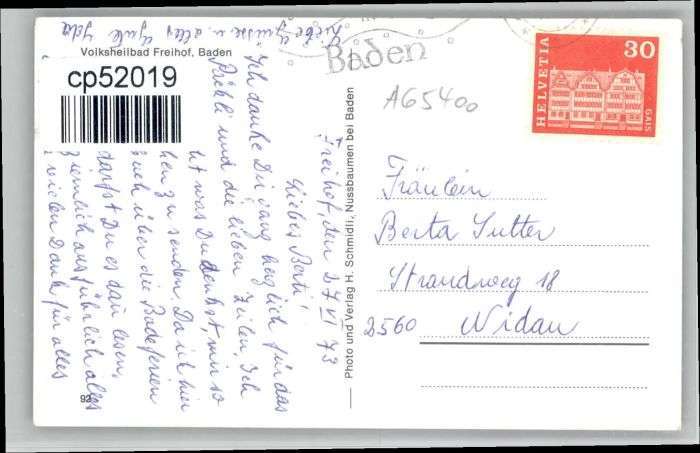 Liebe Grüsse u. alles Gute Ida
Volksheilbad Freihof, Baden
cp52019
Baden
A65400
HELVETIA
30
GAIS
Freihof, den 27 VI 73
Liebes Berti!
Ich danke Dir ganz herzlich für das
Päckli und die lieben Zeilen. Ich
was Du denkst, mir so
zu senden. Da ich hier
auch über die Badeferien
darfst Du es dan lesen,
ziemlich ausführlich alles
vielen Dank für alles
92
Photo und Verlag H. Schmidli, Nussbaumen bei Baden
Fräulein
Berta Sutter
Strandweg 18
2560 Nidau